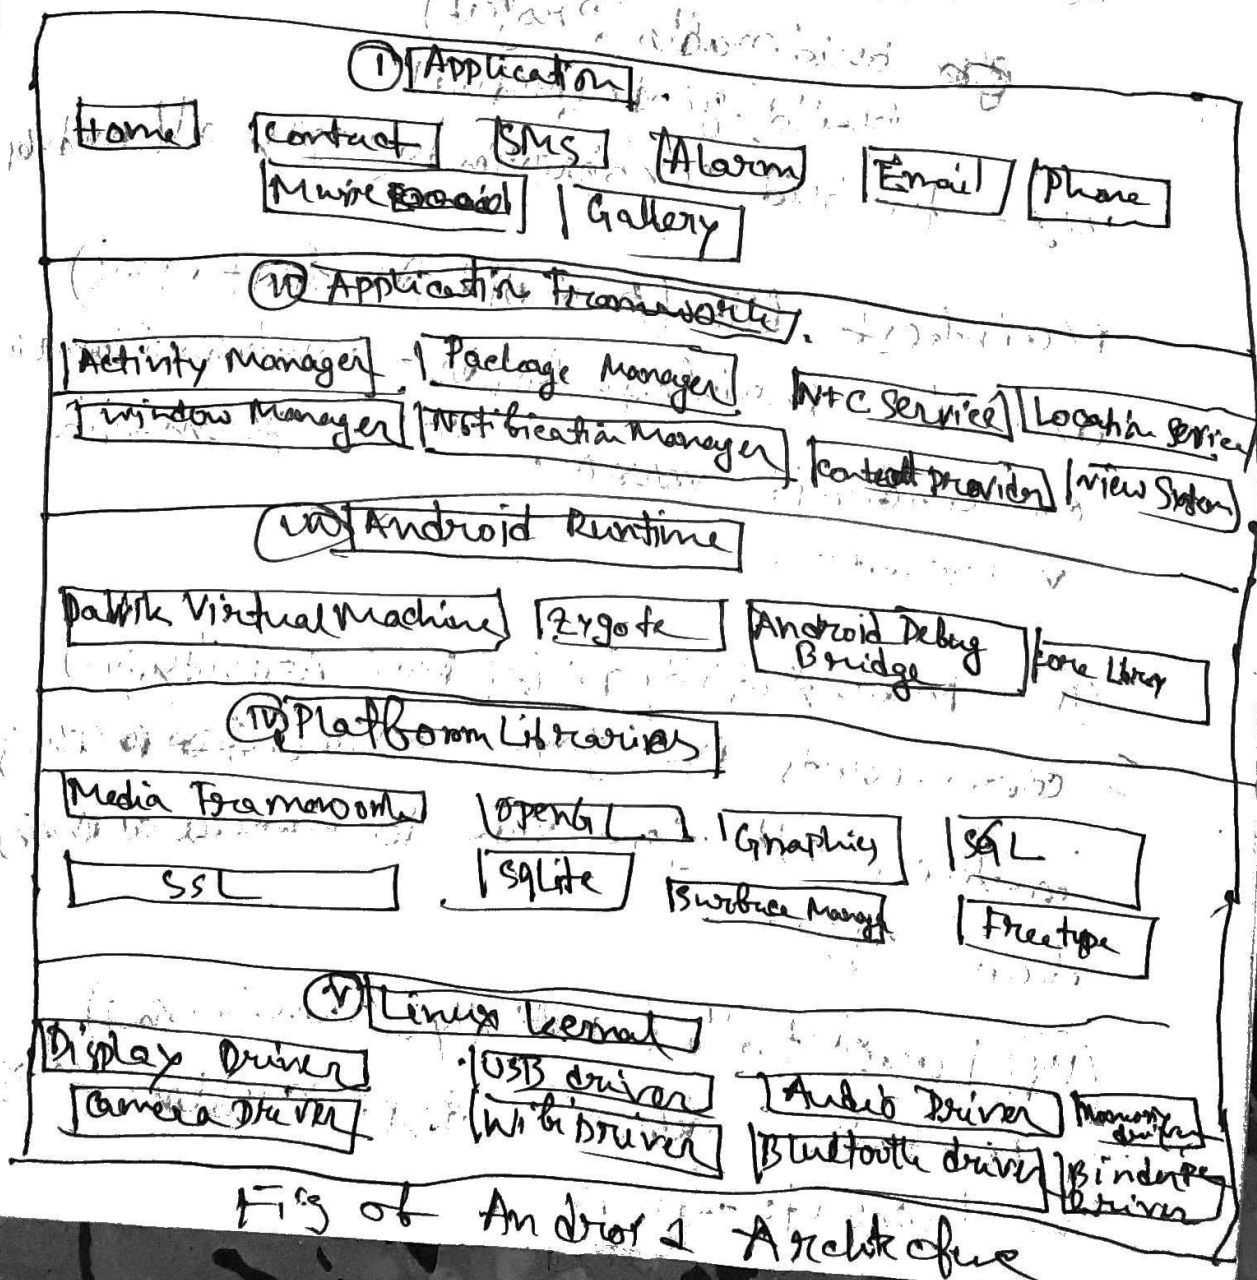 I Application
Home Contact SMS Alarm Email Phone
Music Gallery
Application Framework
Activity Manager Package Manager NFC Service Location Service
Window Manager Notification Manager Content Provider View System
Android Runtime
Dalvik Virtual Machine Zygote Android Debug
Bridge Core Library
IV Platform Libraries
Media Framework OpenGL Graphics SGL
SSL SQLite Surface Manager Freetype
V Linux Kernal
Display Driver USB driver Audio Driver Memory
driver
Camera Driver Wifi Driver Bluetooth driver Binder IPC
Driver
Fig of Android Architecture